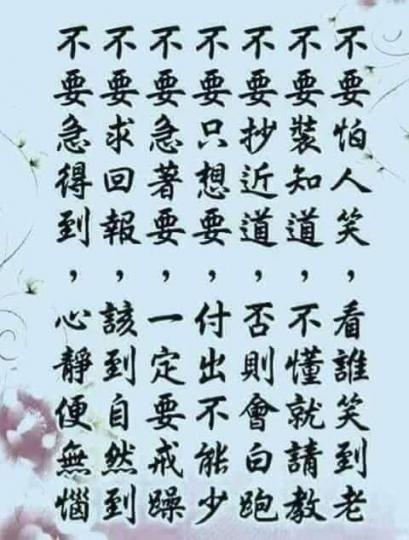 不要怕人笑，看誰笑到老
不要裝知道，不懂就請教
不要抄近道，否則會白跑
不要只想要，付出不能少
不要急著要，一定要戒躁
不要求回報，該到自然到
不要急得到，心靜便無惱